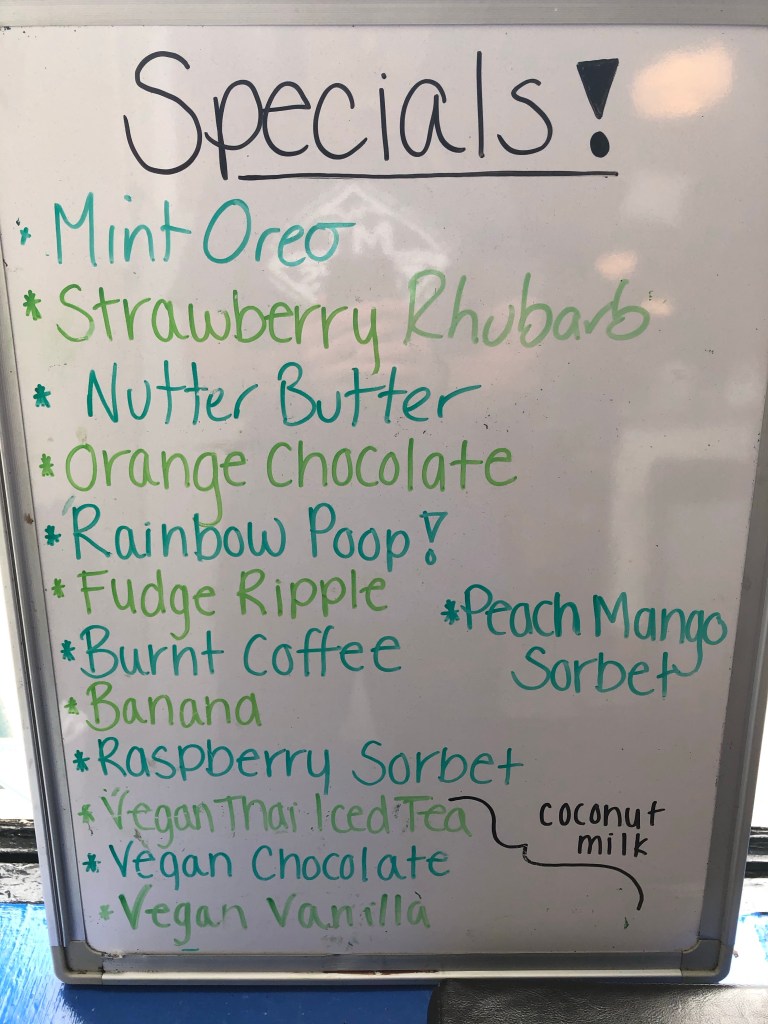 Specials!
* Mint Oreo
* Strawberry Rhubarb
* Nutter Butter
* Orange Chocolate
* Rainbow Poop!
* Fudge Ripple
* Peach Mango
Sorbet
* Burnt Coffee
* Banana
* Raspberry Sorbet
* Vegan Thai Iced Tea
* Vegan Chocolate
* Vegan Vanilla
coconut
milk